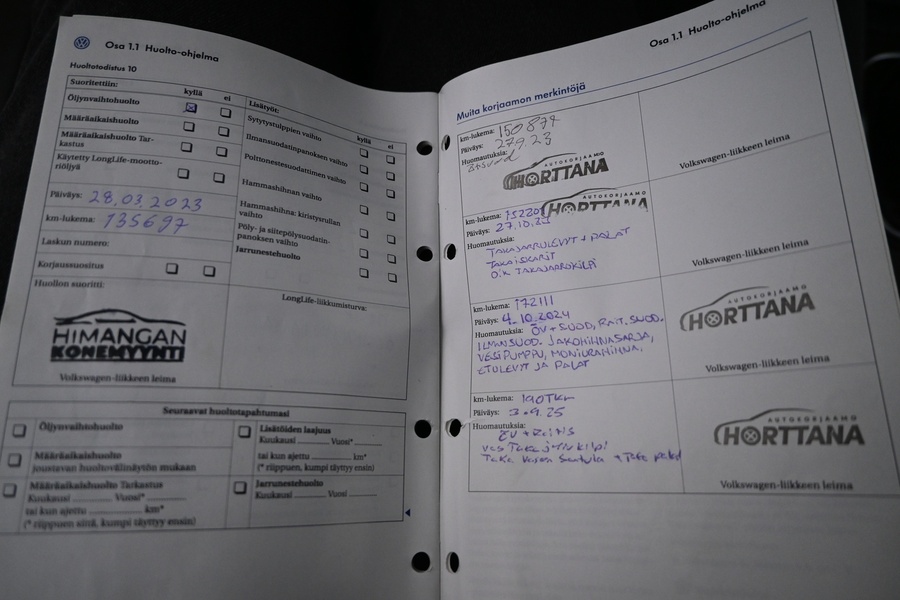 Osa 1.1 Huolto-ohjelma
Huoltotodistus 10
Suoritettiin:
kyllä ei
Öljynvaihtohuolto
Määräaikaishuolto
Määräaikaishuolto Tar-
kastus
Käytetty LongLife-mootto-
riöljyä
Päiväys: 28.03.2023
km-lukema: 135697
Laskun numero:
Korjaussuositus
Huollon suoritti:
HIMANGAN
KONEMYYNTI
Volkswagen-liikkeen leima
Lisätyöt:
kyllä ei
Sytytystulppien vaihto
Ilmansuodatinpanoksen vaihto
Polttonestesuodattimen vaihto
Hammashihnan vaihto
Hammashihna: kiristysrullan
vaihto
Pöly- ja siitepölysuodatin-
panoksen vaihto
Jarrunestehuolto
LongLife-liikkumisturva:
Seuraavat huoltotapahtumasi
Öljynvaihtohuolto
Määräaikaishuolto
joustavan huoltovälinäytön mukaan
Määräaikaishuolto Tarkastus
Kuukausi Vuosi*
tai kun ajettu km*
(* riippuen siitä, kumpi täyttyy ensin)
Lisätöiden laajuus
Kuukausi Vuosi*
tai kun ajettu km*
(* riippuen, kumpi täyttyy ensin)
Jarrunestehuolto
Kuukausi Vuosi
Osa 1.1 Huolto-ohjelma
Muita korjaamon merkintöjä
km-lukema: 150874
Päiväys: 27.9.23
Huomautuksia:
AUTOKORJAAMO
HORTTANA
Volkswagen-liikkeen leima
AUTOKORJAAMO
HORTTANA
km-lukema:
Päiväys: 27.10.23
Huomautuksia:
TAKAJARRULEVYT + PALAT
TAKAISKARIT
OIK TAKAJARRUKILPI
Volkswagen-liikkeen leima
km-lukema: 172111
Päiväys: 4.10.2024
Huomautuksia: ÖV + SUOD, RAIT. SUOD.
ILMANSUOD. JAKOHIHNASARJA,
VESIPUMPPU, MONIURAHIHNA,
ETULEVYT JA PALAT
AUTOKORJAAMO
HORTTANA
Volkswagen-liikkeen leima
km-lukema: 190TKM
Päiväys: 3.9.25
Huomautuksia:
ÖV + Raitis
vas Taka jarrukilpi
Taka vasen Satula + Taka palat
AUTOKORJAAMO
HORTTANA
Volkswagen-liikkeen leima